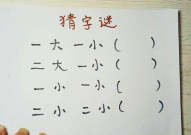 猜字谜
一大一小(  )
二大一小(  )
一小一小(  )
二小二小(  )